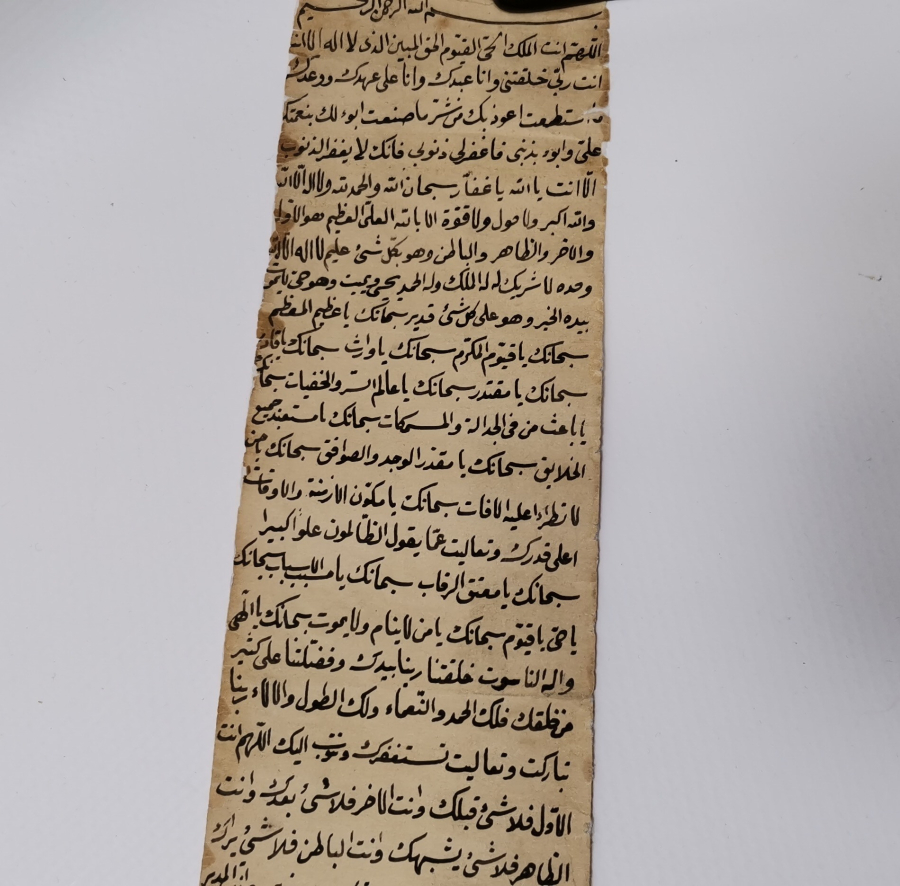 بسم الله الرحمن الرحيم
اللهم انت الملك الحى القيوم الحق المبين الذى لا اله الا انت
انت ربى خلقتنى وانا عبدك وانا على عهدك ووعدك
ما استطعت اعوذ بك من شر ما صنعت ابوء لك بنعمتك
على وابوء بذنبى فاغفرلى ذنوبى فانك لا يغفر الذنوب
الا انت يا الله يا غفار سبحان الله والحمد لله ولا اله الا الله
والله اكبر ولا حول ولا قوة الا بالله العلى العظيم هو الاول
والاخر والظاهر والباطن وهو بكل شئ عليم لا اله الا الله
وحده لا شريك له له الملك وله الحمد يحيى ويميت وهو حى لا يموت
بيده الخير وهو على كل شئ قدير سبحانك يا عظيم المعظم
سبحانك يا قيوم المكرم سبحانك يا وارث سبحانك يا قادر
سبحانك يا مقتدر سبحانك يا عالم السر والخفيات سبحانك
يا باعث من فى الجدالة والمسمكات سبحانك يا مستعبد جميع
الخلايق سبحانك يا مقدر الوجد والصوافق سبحانك يا من
لا تطراء عليه الافات سبحانك يا مكون الازمنة والاوقات
اعلى قدرك وتعاليت عما يقول الظالمون علوا كبيرا
سبحانك يا معتق الرقاب سبحانك يا مسبب الاسباب سبحانك
يا حى يا قيوم سبحانك يا من لا ينام ولا يموت سبحانك يا الهى
واله الناسوت خلقتنا ربنا بيدك وفضلتنا على كثير
من خلقك فلك الحمد والنعماء ولك الطول والالاء ربنا
تباركت وتعاليت نستغفرك ونتوب اليك اللهم انت
الاول فلا شئ قبلك وانت الاخر فلا شئ بعدك وانت
الظاهر فلا شئ يشبهك وانت الباطن فلا شئ يراك